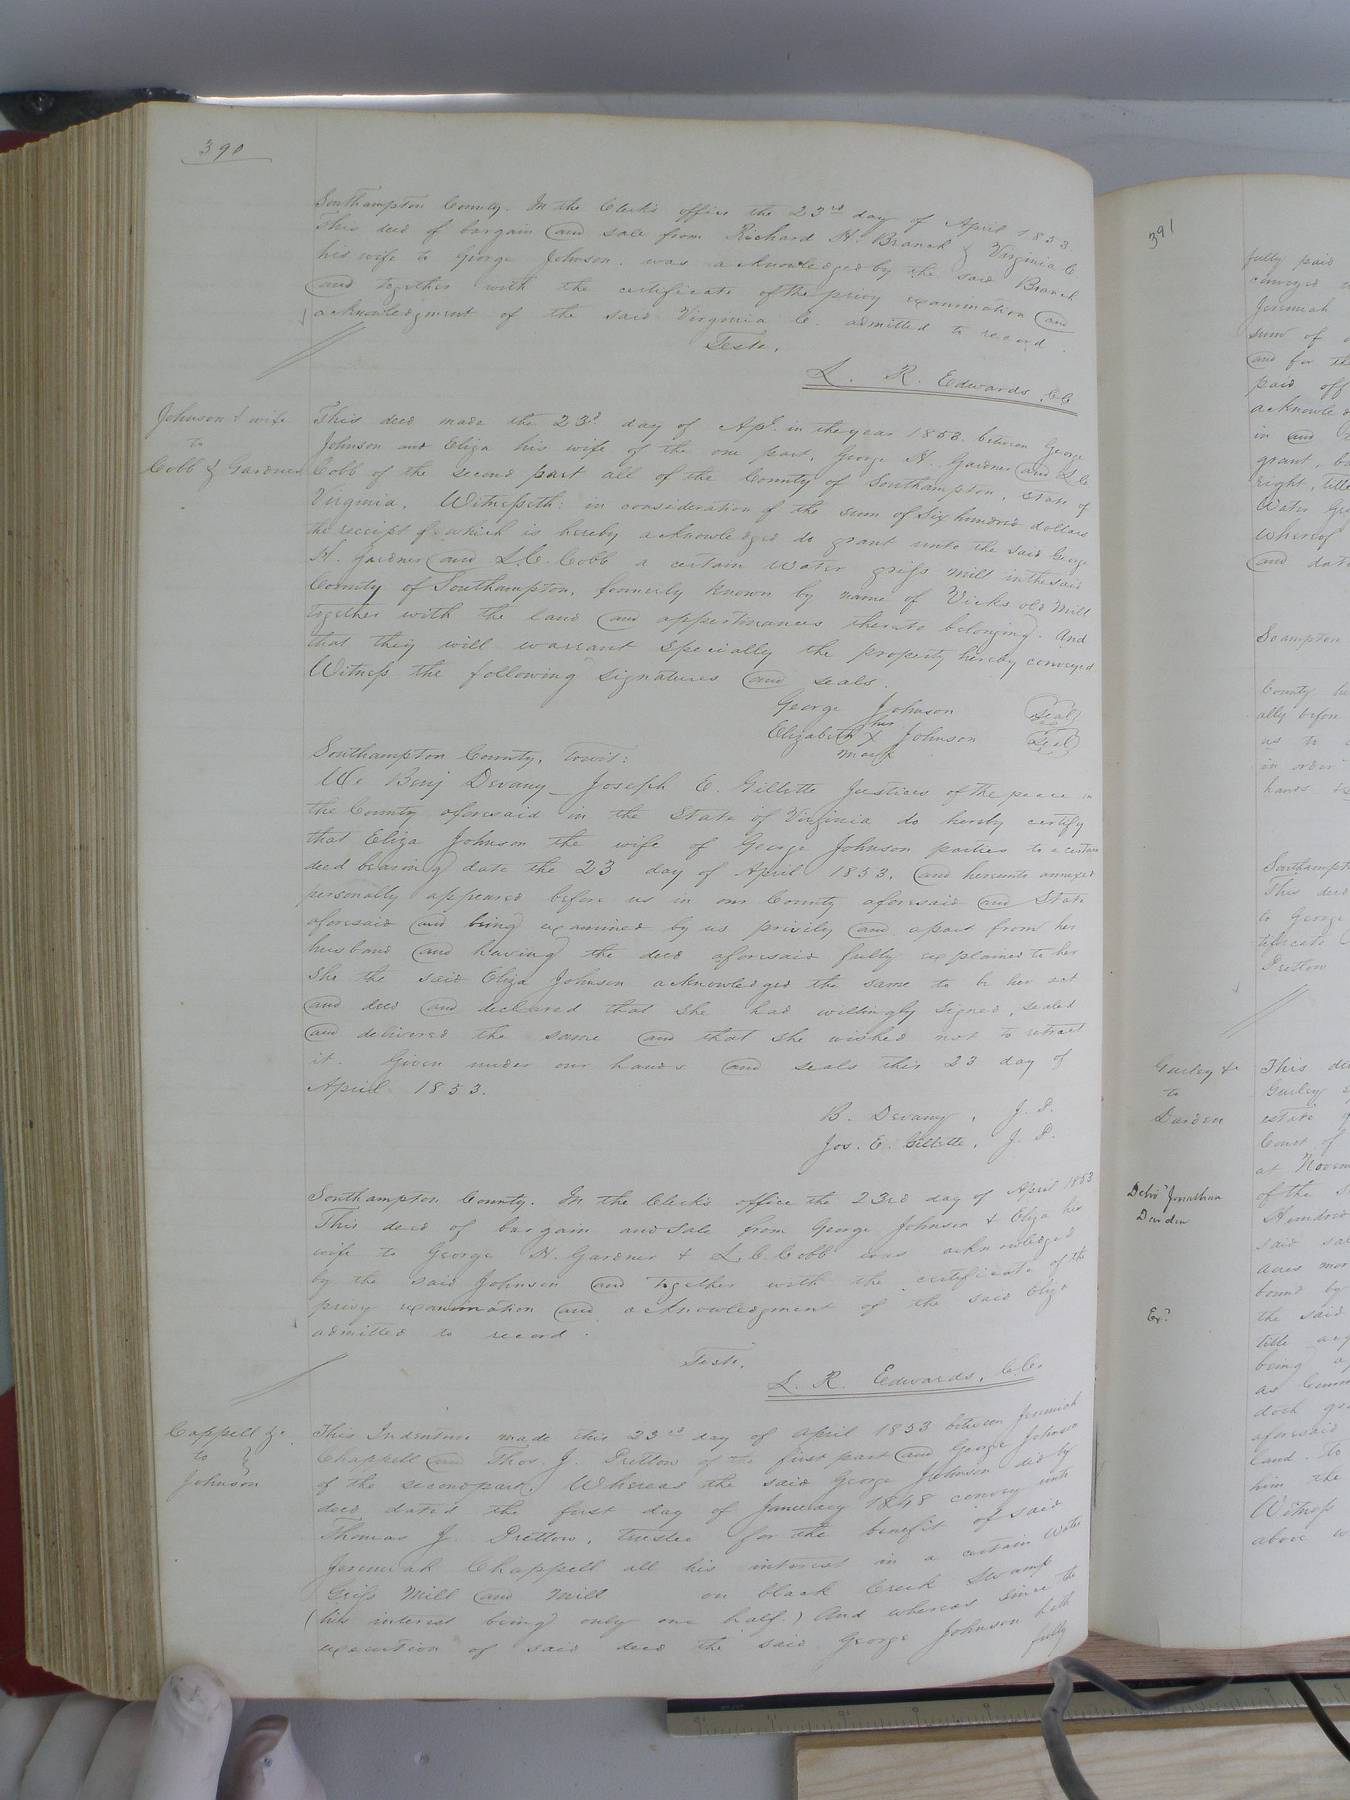 390
Southampton County. In the Clerk's office the 23rd day of April 1853.
This deed of bargain and sale from Richard H. Branch & Virginia C
his wife to George Johnson. was acknowledged by the said Branch
and together with the certificate of the privy examination and
acknowledgment of the said Virginia C. admitted to record.
Teste,
L. R. Edwards CC
Johnson & wife
to
Cobb & Gardner
This deed made the 23d day of Apl. in the year 1853. between George
Johnson and Eliza his wife of the one part, George H. Gardner and L. C
Cobb of the second part all of the County of Southampton, State of
Virginia, Witnesseth, in consideration of the sum of Six hundred dollars
the receipt of which is hereby acknowledged do grant unto the said George
H. Gardner and L. C. Cobb a certain water griss mill in the said
County of Southampton, formerly known by name of Vicks old Mill
together with the land and appertinances thereto belonging. And
that they will warrant specially the property hereby conveyed
Witness the following signatures and seals.
George Johnson Seal
her
Elizabeth X Johnson Seal
mark
Southampton County, towit:
We Benj Devany Joseph E. Gillette Justices of the peace in
the County aforesaid in the State of Virginia do hereby certify
that Eliza Johnson the wife of George Johnson parties to a certain
deed bearing date the 23 day of April 1853. and hereunto annexed
personally appeared before us in our County aforesaid and State
aforesaid and being examined by us privily and apart from her
husband and having the deed aforesaid fully explained to her
She the said Eliza Johnson acknowledged the same to be her act
and deed and declared that she had willingly signed, sealed
and delivered the same and that she wished not to retract
it. Given under our hands and seals this 23 day of
April 1853.
B. Devany, J. P.
Jos. E. Gillette, J. P.
Southampton County. In the Clerk's office the 23rd day of April 1853
This deed of bargain and sale from George Johnson & Eliza his
wife to George H. Gardner & L. C. Cobb was acknowledged
by the said Johnson and together with the certificate of the
privy examination and acknowledgment of the said Eliza
admitted to record.
Teste,
L. R. Edwards, C.C.
Cappell &c
to
Johnson
This Indenture made this 23rd day of April 1853 between Jeremiah
Chappell and Thos. J. Pretlow of the first part and George Johnson
of the second part. Whereas the said George Johnson did by
deed dated the first day of Januerary 1848 convey unto
Thomas J. Pretlow, trustee for the benefit of said
Jeremiah Chappell all his interest in a certain Water
Griss Mill and Mill on black Creek Swamp
(his interest being only one half.) And whereas since the
execution of said deed the said George Johnson hath
fully
391
fully paid
conveyed
Jeremiah
sum of
and for the
paid off
acknowled
in and
grant, ba
right, title
Water
whereof
and date
Soampton
County
ally before
as to
in order
hands
Southampt
This deed
to George
tificate
Pretlow
Gurley &c
to
Darden
This
Gurley
estate
Court of
at Novem
Delv'd Jonathan
Darden
of the
Hundred
said
acres mor
bound by
Ex'd
the said
title
being
as Comm
doth
aforesaid
land. To
him the
Witness
above